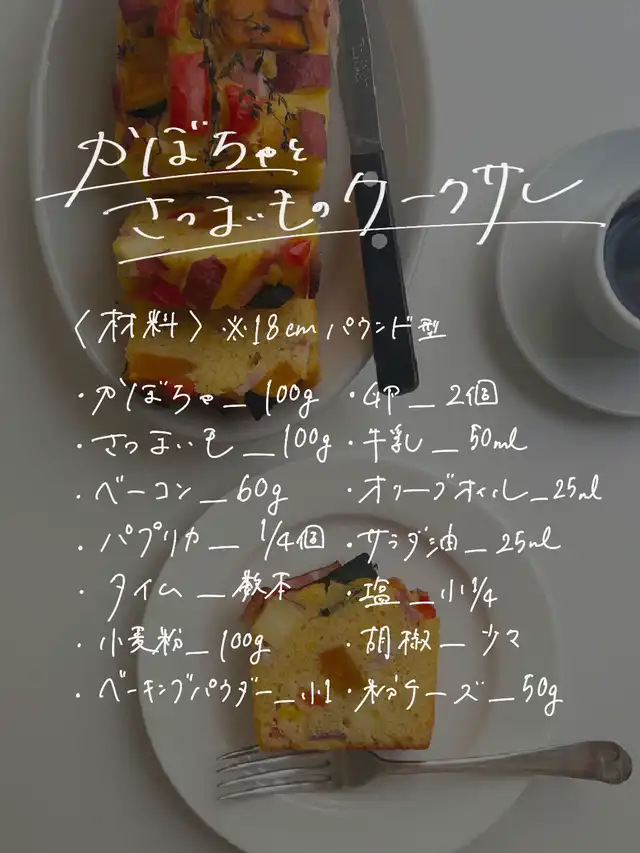 かぼちゃと
さつまいものケークサレ
〈材料〉※18cmパウンド型
・かぼちゃ_100g
・さつまいも_100g
・ベーコン_60g
・パプリカ_1/4個
・タイム_数本
・小麦粉_100g
・ベーキングパウダー_小1
・卵_2個
・牛乳_50ml
・オリーブオイル_25ml
・サラダ油_25ml
・塩_小1/4
・胡椒_少々
・粉チーズ_50g